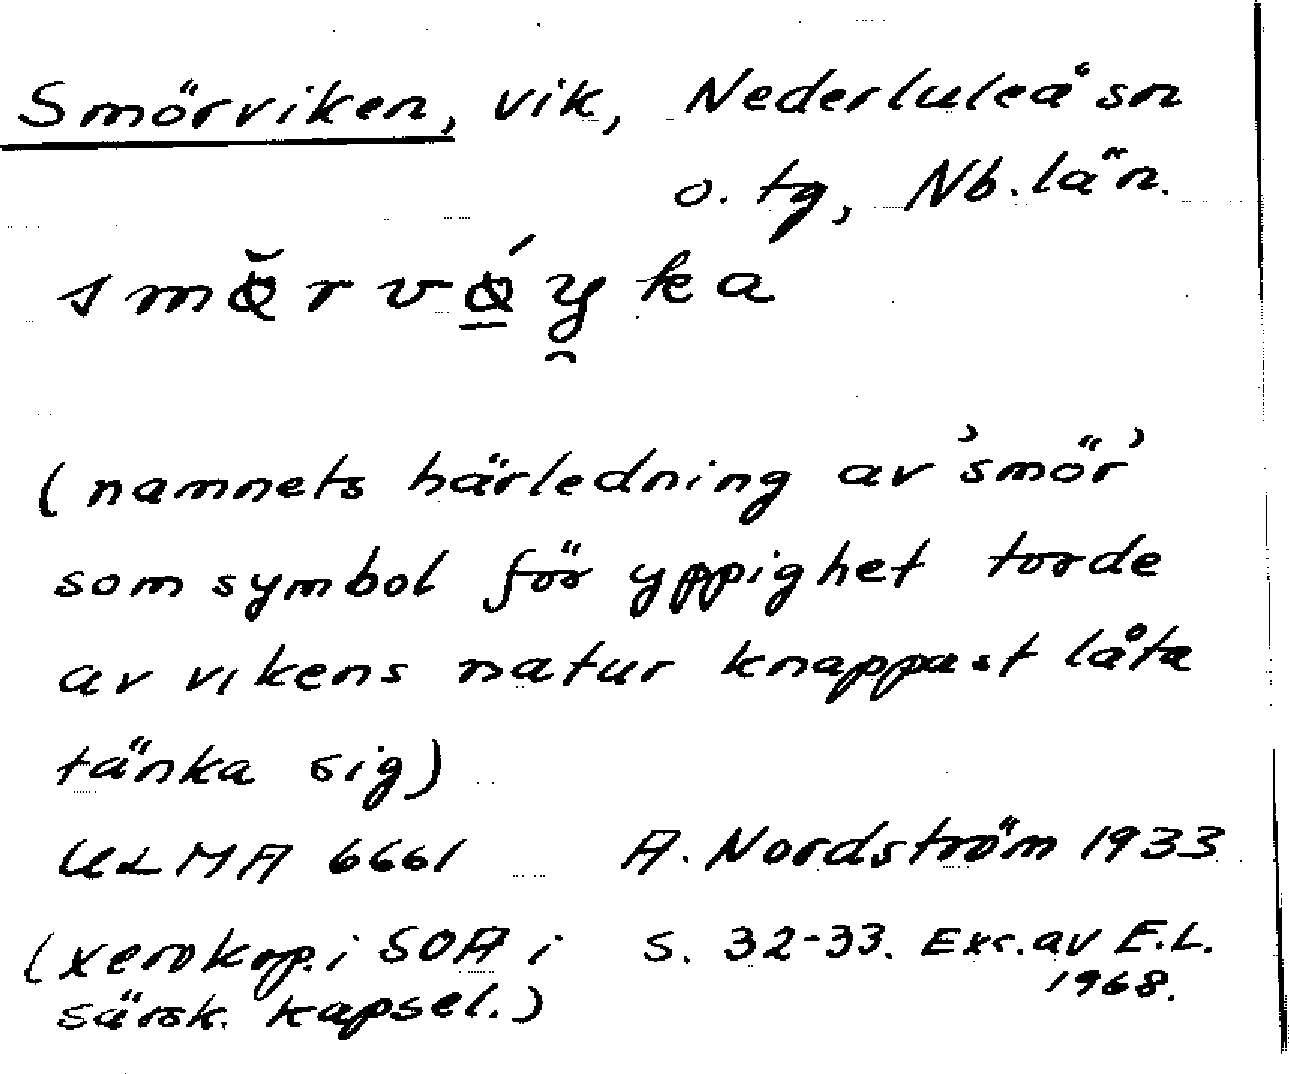 Smörviken, vik, Nederluleå sn
o. tg, Nb. län.
(namnets härledning av 'smör'
som symbol för yppighet torde
av vikens natur knappast låta
tänka sig)
ULMA 6661 A. Nordström 1933
(xerokop. i SOA i S. 32-33. Exc. av E.L.
särsk. kapsel.) 1968.